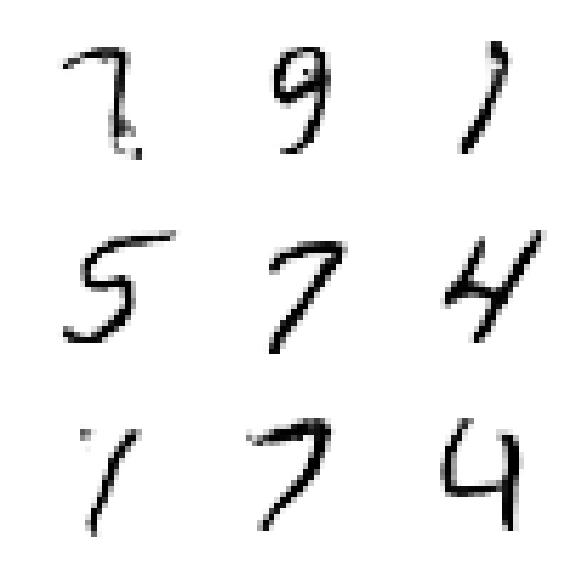 7 9 1
5 7 4
1 7 4